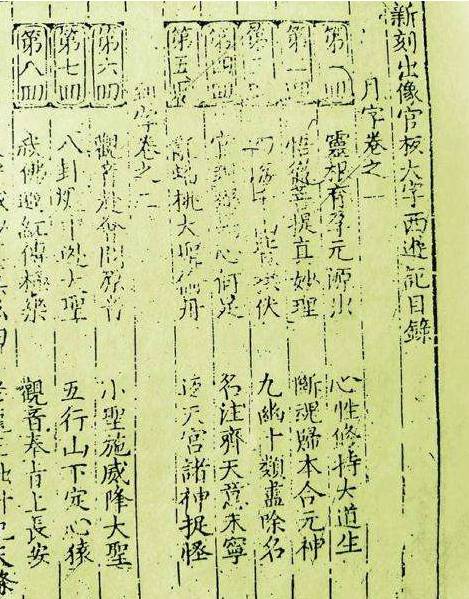 新刻出像官板大字西遊記目錄
月字卷之一
第一回 靈根育孕元源出 心性修持大道生
悟徹菩提真妙理 斷魂歸本合元神
四海千山皆拱伏 九幽十類盡除名
第四回 官封 心何足 名注齊天意未寧
第五回 亂蟠桃大聖偷丹 反天宮諸神捉怪
字卷之二
第六回 觀音赴會問原 小聖施威降大聖
第七回 八卦爐中逃大聖 五行山下定心猿
第八回 我佛造經傳極樂 觀音奉旨上長安